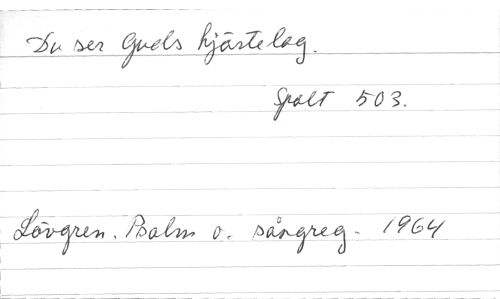 Du ser Guds hjärtelag.
Spalt 503.
Lövgren. Psalm o. sångreg. 1964